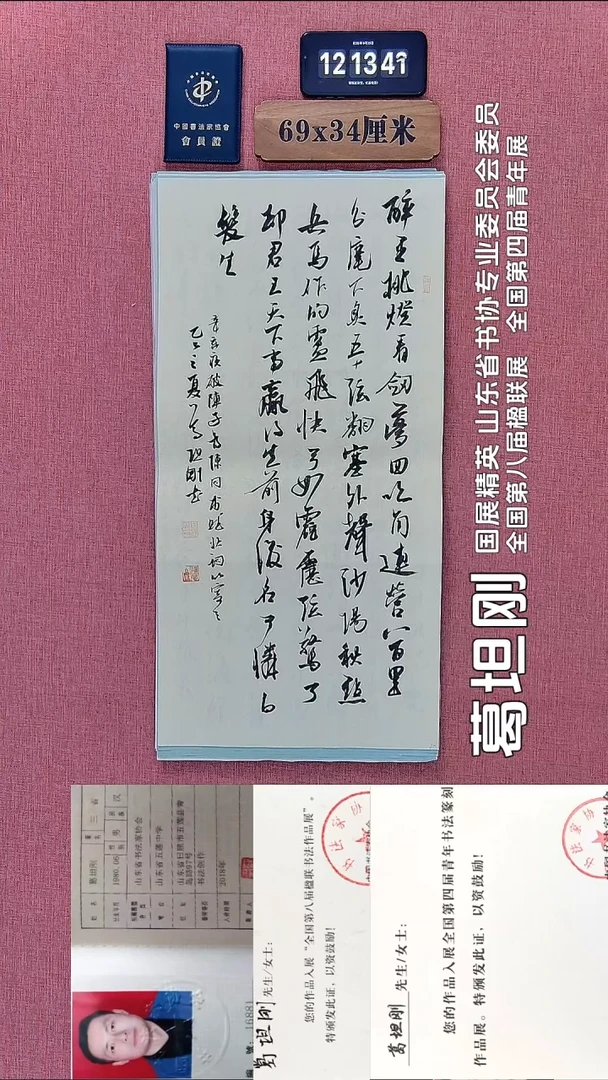 中國書法家協會
會員證
12 13 41
69x34厘米
醉里挑燈看劍夢回吹角連營八百里
分麾下炙五十弦翻塞外聲沙場秋點
兵馬作的盧飛快弓如霹靂弦驚了
却君王天下事贏得生前身後名可憐白
髮生
辛棄疾破陣子為陳同甫賦壯詞以寄之
乙巳之夏葛坦剛書
国展精英 山东省书协专业委员会委员
全国第八届楹联展 全国第四届青年展
葛坦刚
姓名 葛坦刚
1980.06 汉
山东省书法家协会
山东省五莲中学
书法创作
2018年
葛坦刚 先生/女士：
您的作品入展“全国第八届楹联书法作品展”。
特颁发此证，以资鼓励！
葛坦刚 先生/女士：
您的作品入展全国第四届青年书法篆刻
作品展。特颁发此证，以资鼓励！